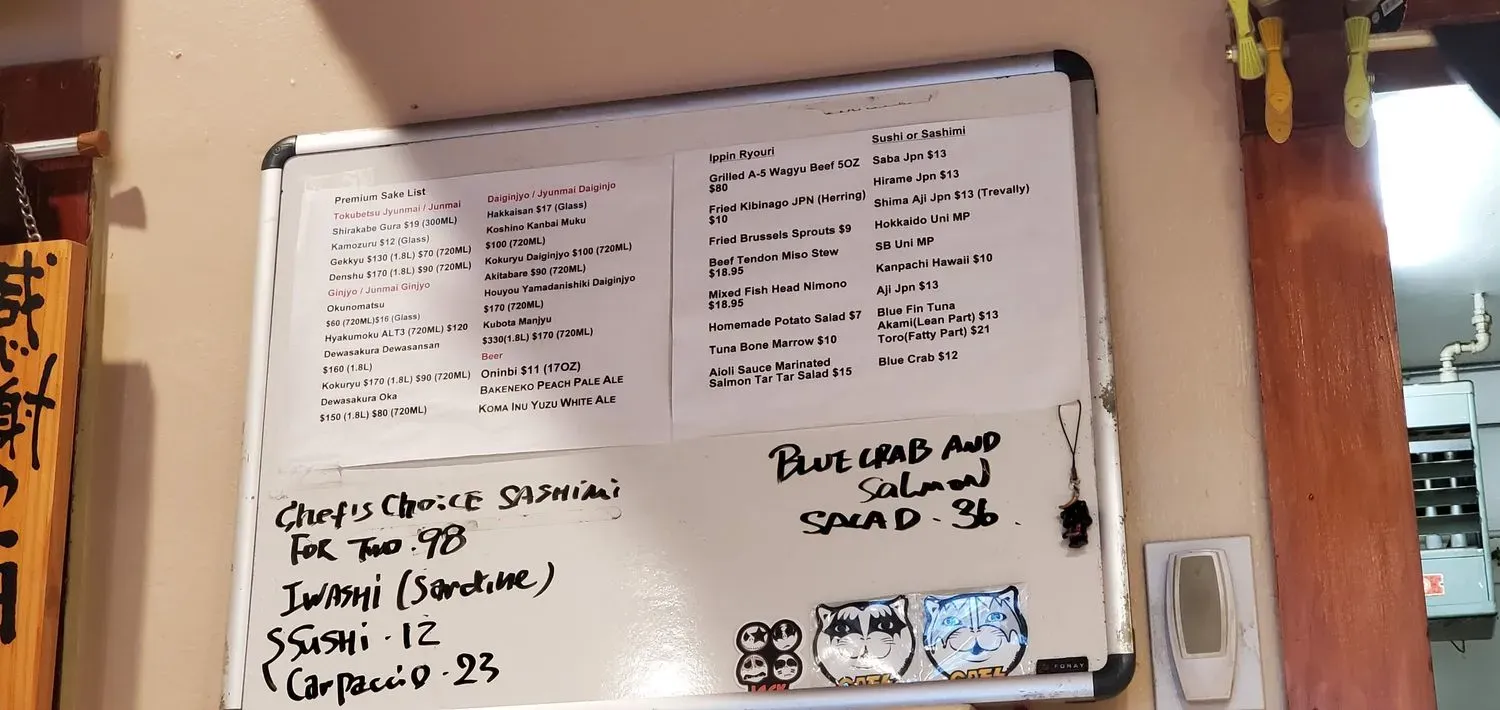 Premium Sake List
Tokubetsu Jyunmai / Junmai
Shirakabe Gura $19 (300ML)
Kamozuru $12 (Glass)
Gekkyu $130 (1.8L) $70 (720ML)
Denshu $170 (1.8L) $90 (720ML)
Ginjyo / Junmai Ginjyo
Okunomatsu
$60 (720ML)$16 (Glass)
Hyakumoku ALT3 (720ML) $120
Dewasakura Dewasansan
$160 (1.8L)
Kokuryu $170 (1.8L) $90 (720ML)
Dewasakura Oka
$150 (1.8L) $80 (720ML)
Daiginjyo / Jyunmai Daiginjo
Hakkaisan $17 (Glass)
Koshino Kanbai Muku
$100 (720ML)
Kokuryu Daiginjyo $100 (720ML)
Akitabare $90 (720ML)
Houyou Yamadanishiki Daiginjyo
$170 (720ML)
Kubota Manjyu
$330(1.8L) $170 (720ML)
Beer
Oninbi $11 (17OZ)
BAKENEKO PEACH PALE ALE
KOMA INU YUZU WHITE ALE
Ippin Ryouri
Grilled A-5 Wagyu Beef 5OZ
$80
Fried Kibinago JPN (Herring)
$10
Fried Brussels Sprouts $9
Beef Tendon Miso Stew
$18.95
Mixed Fish Head Nimono
$18.95
Homemade Potato Salad $7
Tuna Bone Marrow $10
Aioli Sauce Marinated
Salmon Tar Tar Salad $15
Sushi or Sashimi
Saba Jpn $13
Hirame Jpn $13
Shima Aji Jpn $13 (Trevally)
Hokkaido Uni MP
SB Uni MP
Kanpachi Hawaii $10
Aji Jpn $13
Blue Fin Tuna
Akami(Lean Part) $13
Toro(Fatty Part) $21
Blue Crab $12
Chef's Choice SASHIMI
FOR TWO . 98
IWASHI (Sardine)
SUSHI . 12
Carpaccio . 23
BLUE CRAB AND
Salmon
SALAD . 36 .
JACK
FORAY
感謝の